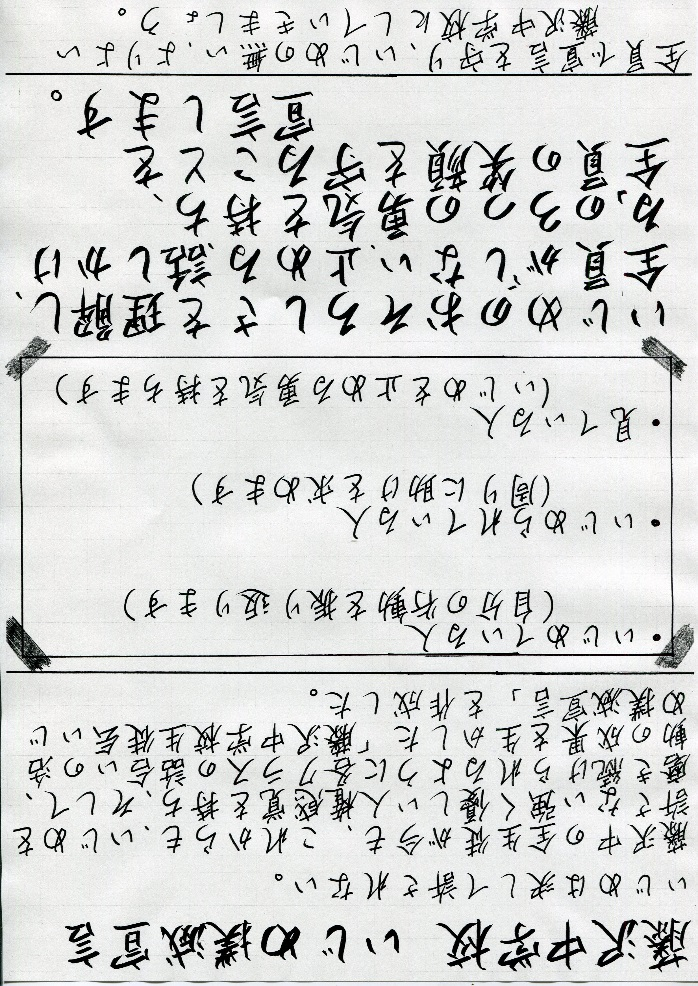 藤沢中学校 いじめ撲滅宣言
いじめは決して許されない。
藤沢中の全生徒が今も、これからも、いじめを
許さない強く優しい人権感覚を持ち、そして、
磨き続けられるように各クラスの話合いの活
動の成果を生かした「藤沢中学校生徒会いじ
め撲滅宣言」を作成した。
・いじめている人
(自分の行動を振り返ります)
・いじめられている人
(周りに助けを求めます)
・見ている人
(いじめを止める勇気を持ちます)
いじめのおそろしさを理解し、
全員がしない、止める、話しかけ
る、の3つの勇気を持ち、
全員の笑顔を守ることを
宣言します。
全員で宣言を守り、いじめの無い、よりよい
藤沢中学校にしていきましょう。